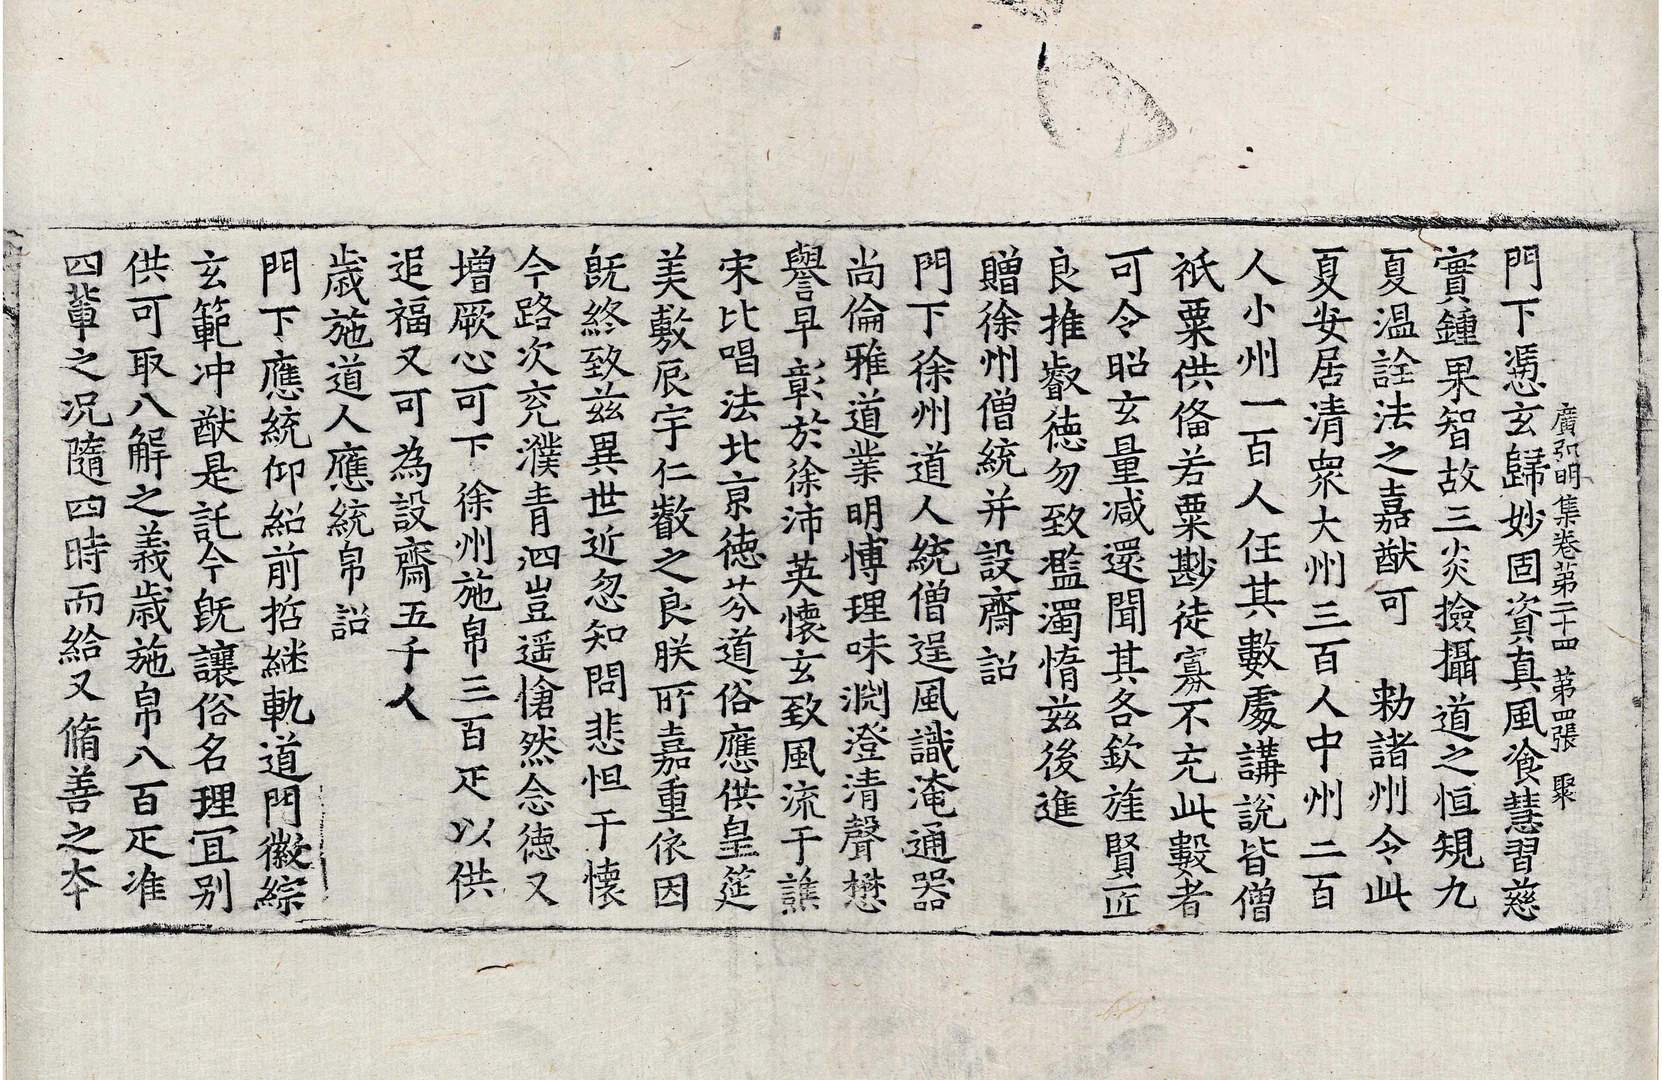 廣弘明集卷第二十四 第四張 聚
門下憑玄歸妙固資真風飡慧習慈
實鍾果智故三炎撿攝道之恒規九
夏温詮法之嘉猷可 勑諸州令此
夏安居清衆大州三百人中州二百
人小州一百人任其數處講說皆僧
祇粟供俻若粟尠徒寡不充此數者
可令昭玄量减還聞其各欽旌賢匠
良推叡德勿致濫濁惰兹後進
贈徐州僧統并設齋詔
門下徐州道人統僧逞風識淹通器
尚倫雅道業明愽理味渕澄清聲懋
譽早彰於徐沛英懷玄致風流于譙
宋比唱法北京德芬道俗應供皇筵
美敷辰宇仁叡之良朕所嘉重依因
旣終致兹異世近忽知問悲怛于懷
今路次兖濮青泗豈遥愴然念德又
增厥心可下徐州施帛三百疋以供
追福又可為設齋五千人
歲施道人應統帛詔
門下應統仰紹前哲継軌道門徽綜
玄範冲猷是託今旣讓俗名理宜别
供可取八解之義歲施帛八百疋准
四軰之况隨四時而給又脩善之本